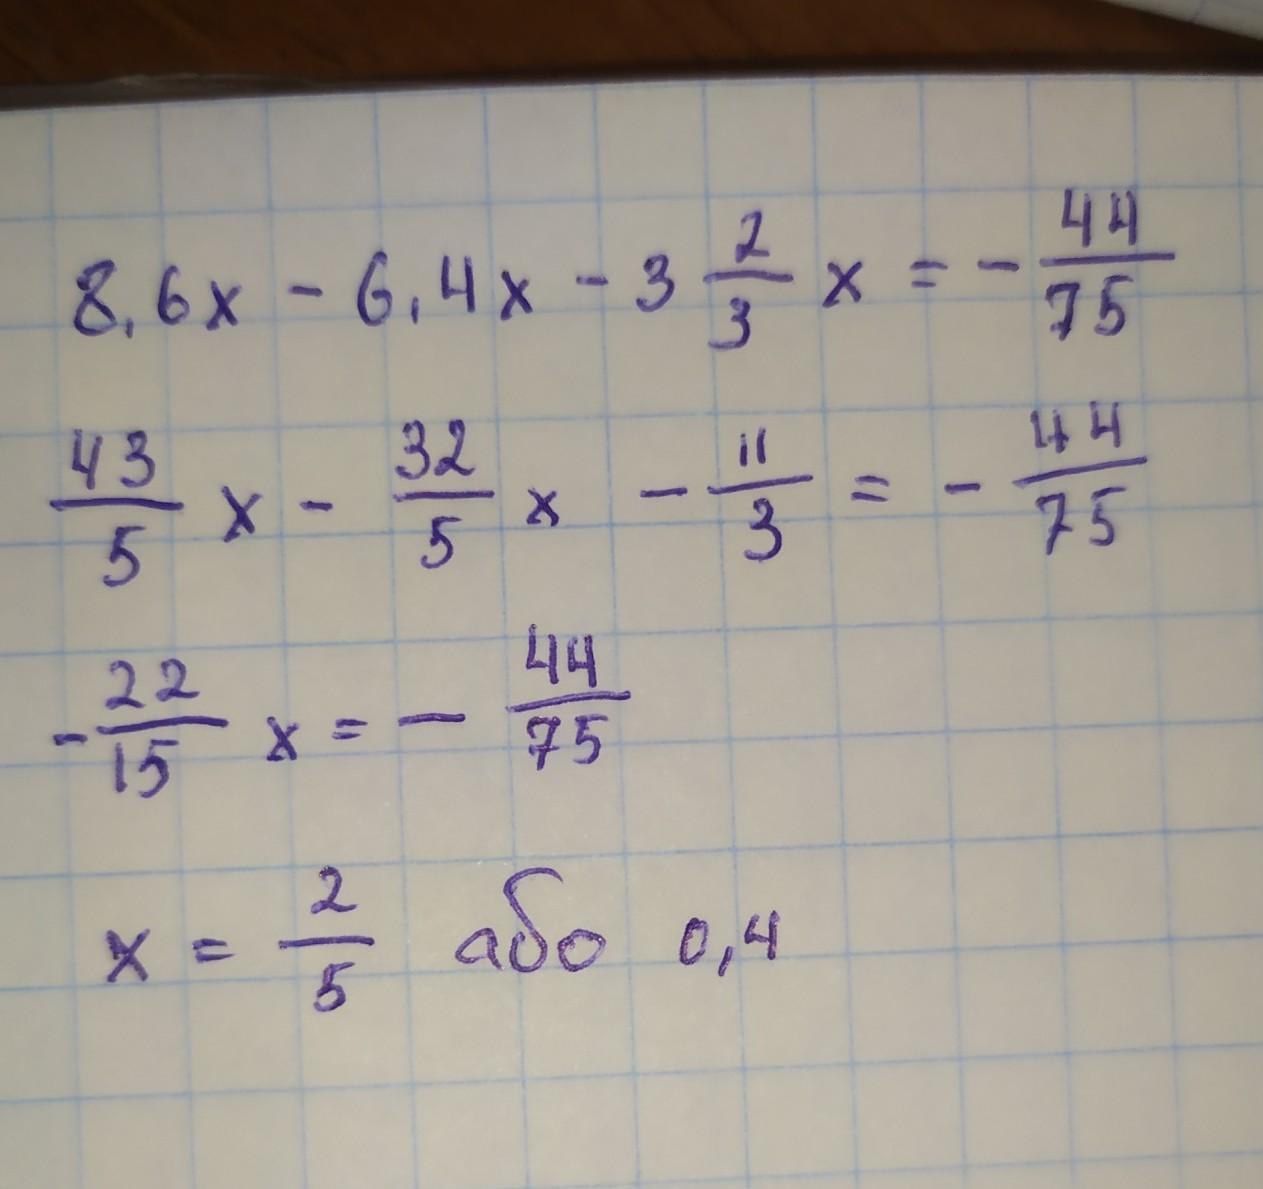 8,6x - 6,4x - 3 2/3 x = - 44/75
43/5 x - 32/5 x - 11/3 = - 44/75
- 22/15 x = - 44/75
x = 2/5 або 0,4